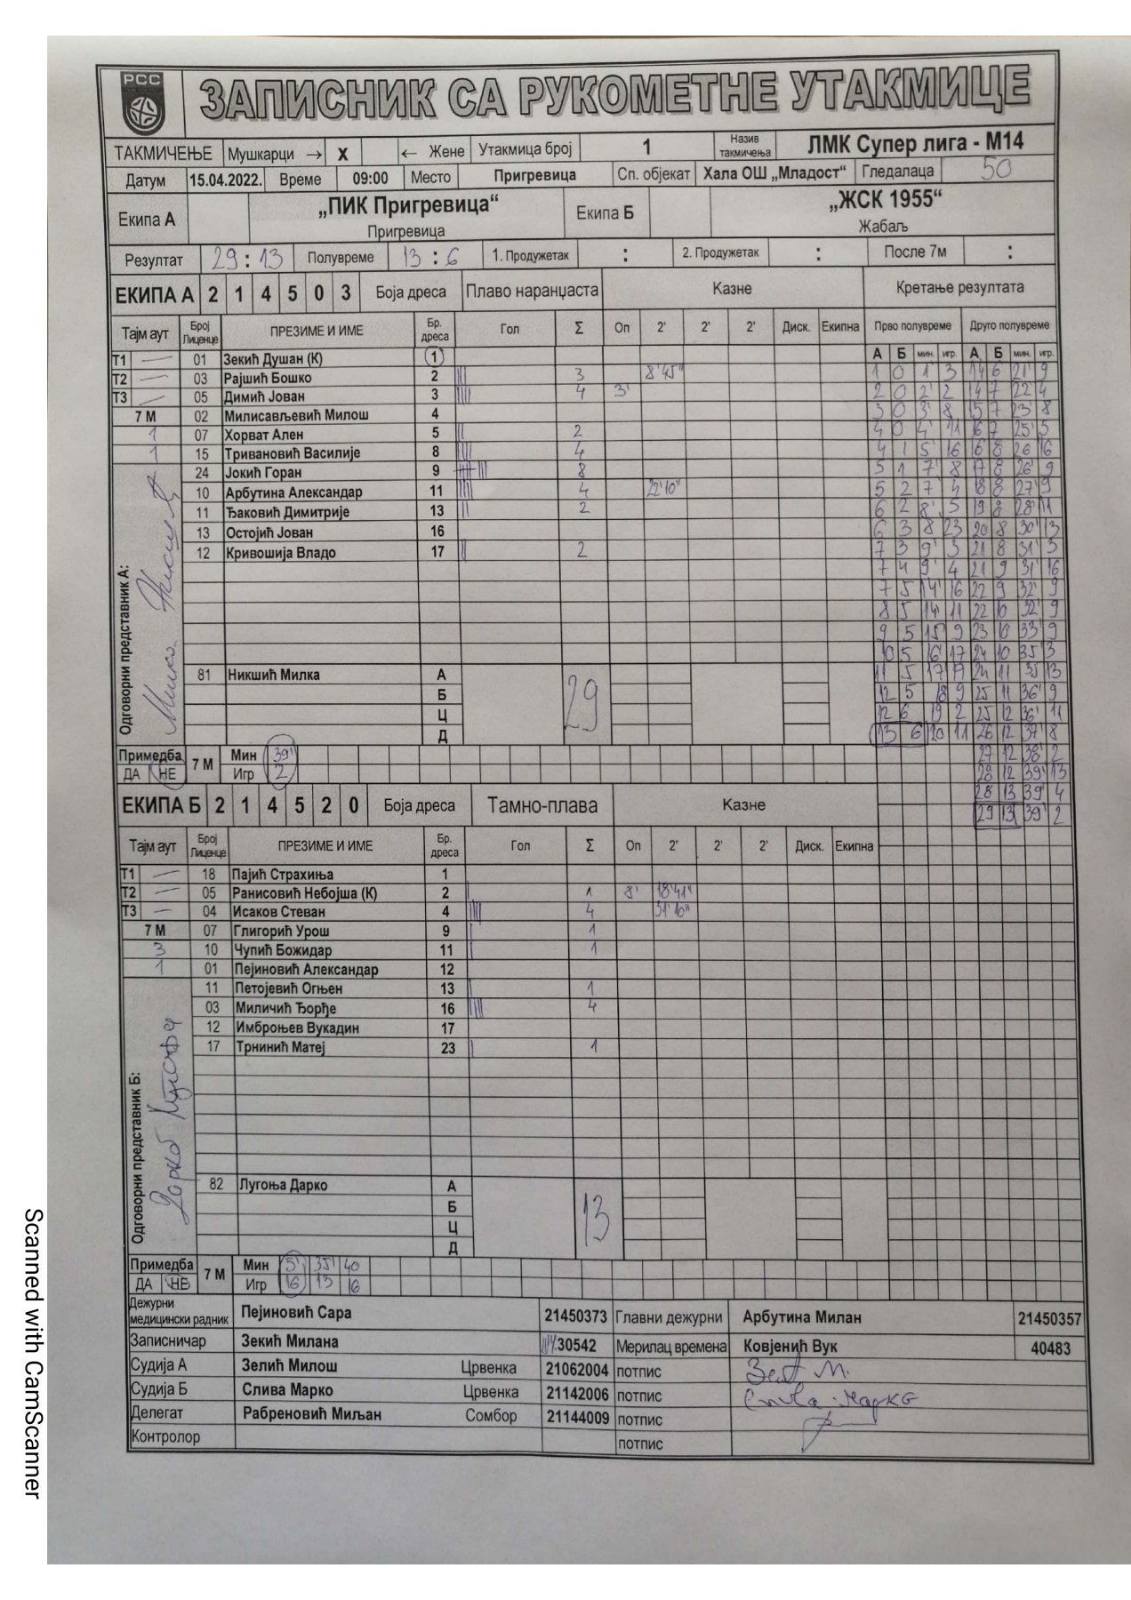 РСС
ЗАПИСНИК СА РУКОМЕТНЕ УТАКМИЦЕ
ТАКМИЧЕЊЕ Мушкарци → X ← Жене Утакмица број 1 Назив такмичења ЛМК Супер лига - М14
Датум 15.04.2022. Време 09:00 Место Пригревица Сп. објекат Хала ОШ „Младост“ Гледалаца 50
Екипа А „ПИК Пригревица“ Екипа Б „ЖСК 1955“
Пригревица Жабаљ
Резултат 29:13 Полувреме 13:6 1. Продужетак : 2. Продужетак : После 7м :
ЕКИПА А 2 1 4 5 0 3 Боја дреса Плаво наранџаста Казне Кретање резултата
Тајм аут Број Лиценце ПРЕЗИМЕ И ИМЕ Бр. дреса Гол Σ Оп 2' 2' 2' Диск. Екипна Прво полувреме Друго полувреме
А Б мин. игр. А Б мин. игр.
Т1 — 01 Зекић Душан (К) 1
1 0 1' 3 14 6 21' 9
Т2 — 03 Рајшић Бошко 2 3 8'45"
2 0 2' 2 14 7 22' 4
Т3 — 05 Димић Јован 3 4 3'
3 0 3' 8 15 7 23' 8
7 М 02 Милисављевић Милош 4
4 0 4' 11 16 7 25' 5
1 07 Хорват Ален 5 2
4 1 5' 16 16 8 26' 16
1 15 Тривановић Василије 8 4
5 1 7' 8 17 8 26' 9
24 Јокић Горан 9 8
5 2 7' 4 18 8 27' 9
10 Арбутина Александар 11 4 22'10"
6 2 8' 5 19 8 28' 11
11 Ђаковић Димитрије 13 2
6 3 8 23 20 8 30' 13
13 Остојић Јован 16
7 3 9' 3 21 8 31' 3
12 Кривошија Владо 17 2
7 4 9' 4 21 9 31' 16
7 5 14' 16 22 9 32' 9
8 5 14' 11 22 10 32' 9
9 5 15' 9 23 10 33' 9
10 5 16' 17 24 10 35' 3
11 5 17' 17 24 11 35' 13
12 5 18 9 25 11 36' 9
12 6 19 2 25 12 36' 11
13 6 20 11 26 12 37' 8
27 12 38' 2
28 12 39' 13
28 13 39' 4
29 13 39' 2
Одговорни представник А:
81 Никшић Милка А
Б
Ц
Д
29
Примедба ДА НЕ 7 М Мин 39'
Игр 2
ЕКИПА Б 2 1 4 5 2 0 Боја дреса Тамно-плава Казне
Тајм аут Број Лиценце ПРЕЗИМЕ И ИМЕ Бр. дреса Гол Σ Оп 2' 2' 2' Диск. Екипна
Т1 — 18 Пајић Страхиња 1
Т2 — 05 Ранисовић Небојша (К) 2 1 8' 18'41"
Т3 — 04 Исаков Стеван 4 4 31'10"
7 М 07 Глигорић Урош 9 1
3 10 Чупић Божидар 11 1
1 01 Пејиновић Александар 12
11 Петојевић Огњен 13 1
03 Миличић Ђорђе 16 4
12 Имброњев Вукадин 17
17 Трнинић Матеј 23 1
Одговорни представник Б:
82 Лугоња Дарко А
Б
Ц
Д
13
Примедба ДА НЕ 7 М Мин 5' 35' 40
Игр 16 13 16
Дежурни медицински радник Пејиновић Сара 21450373 Главни дежурни Арбутина Милан 21450357
Записничар Зекић Милана 30542 Мерилац времена Ковјенић Вук 40483
Судија А Зелић Милош Црвенка 21062004 потпис
Судија Б Слива Марко Црвенка 21142006 потпис Слива Марко
Делегат Рабреновић Миљан Сомбор 21144009 потпис
Контролор потпис
Scanned with CamScanner